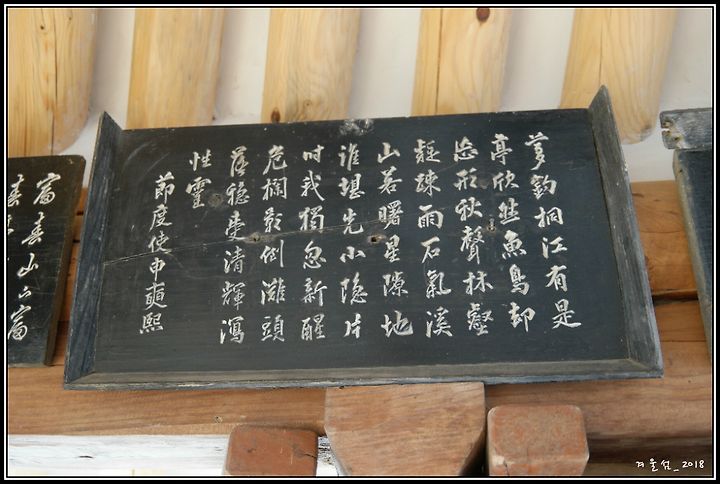 夢釣桐江有是
亭欣然魚鳥却
忘形秋聲林壑
輕疎雨石氣溪
山若曙星隙地
誰堪先小隐片
时我獨忽新醒
危欄影倒灘頭
落穏清輝瀉
性靈
節度使申奭熙
富春山富
春
겨울섬_2018